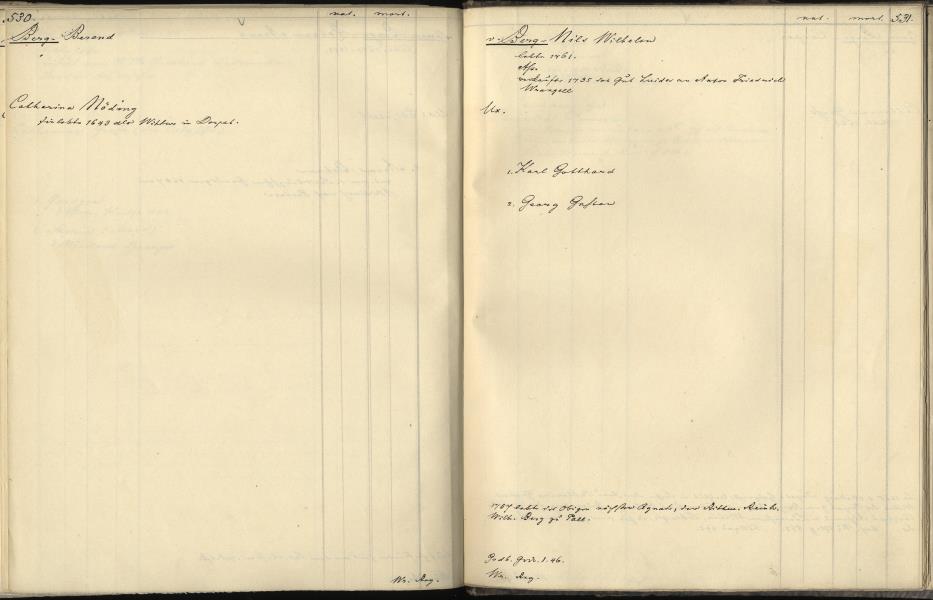 530
nat. mort.
Berg- Berend
Catherina Nöding
sie lebte 1643 als Wittwe in Dorpat.
Wr. Arg.
nat. mort. 531.
v. Berg- Nils Wilhelm
lebte 1761.
Ass.
verkaufte 1735 das Gut Luider an Anton Friedrich
Wrangell
Ux.
1. Karl Gotthard
2. Georg Gustav
lebte des Obigen nächster Agnat, der Rittm. Reinh.
Wilh. Berg zu Pall.
1.46.
Wr. Arg.